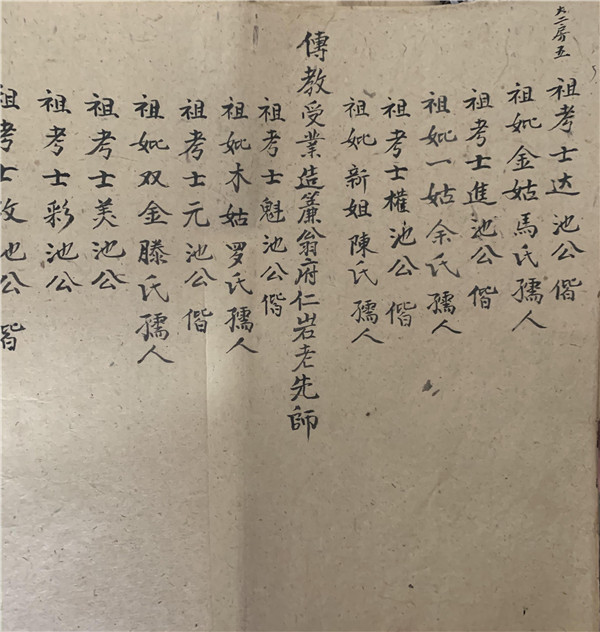 大二房五
祖考士达池公偕
祖妣金姑馬氏孺人
祖考士進池公偕
祖妣一姑余氏孺人
祖考士權池公偕
祖妣新姐陳氏孺人
傳教受業造簾翁府仁岩老先師
祖考士魁池公偕
祖妣木姑罗氏孺人
祖考士元池公偕
祖妣双金滕氏孺人
祖考士美池公
祖考士彩池公
祖考士池公偕